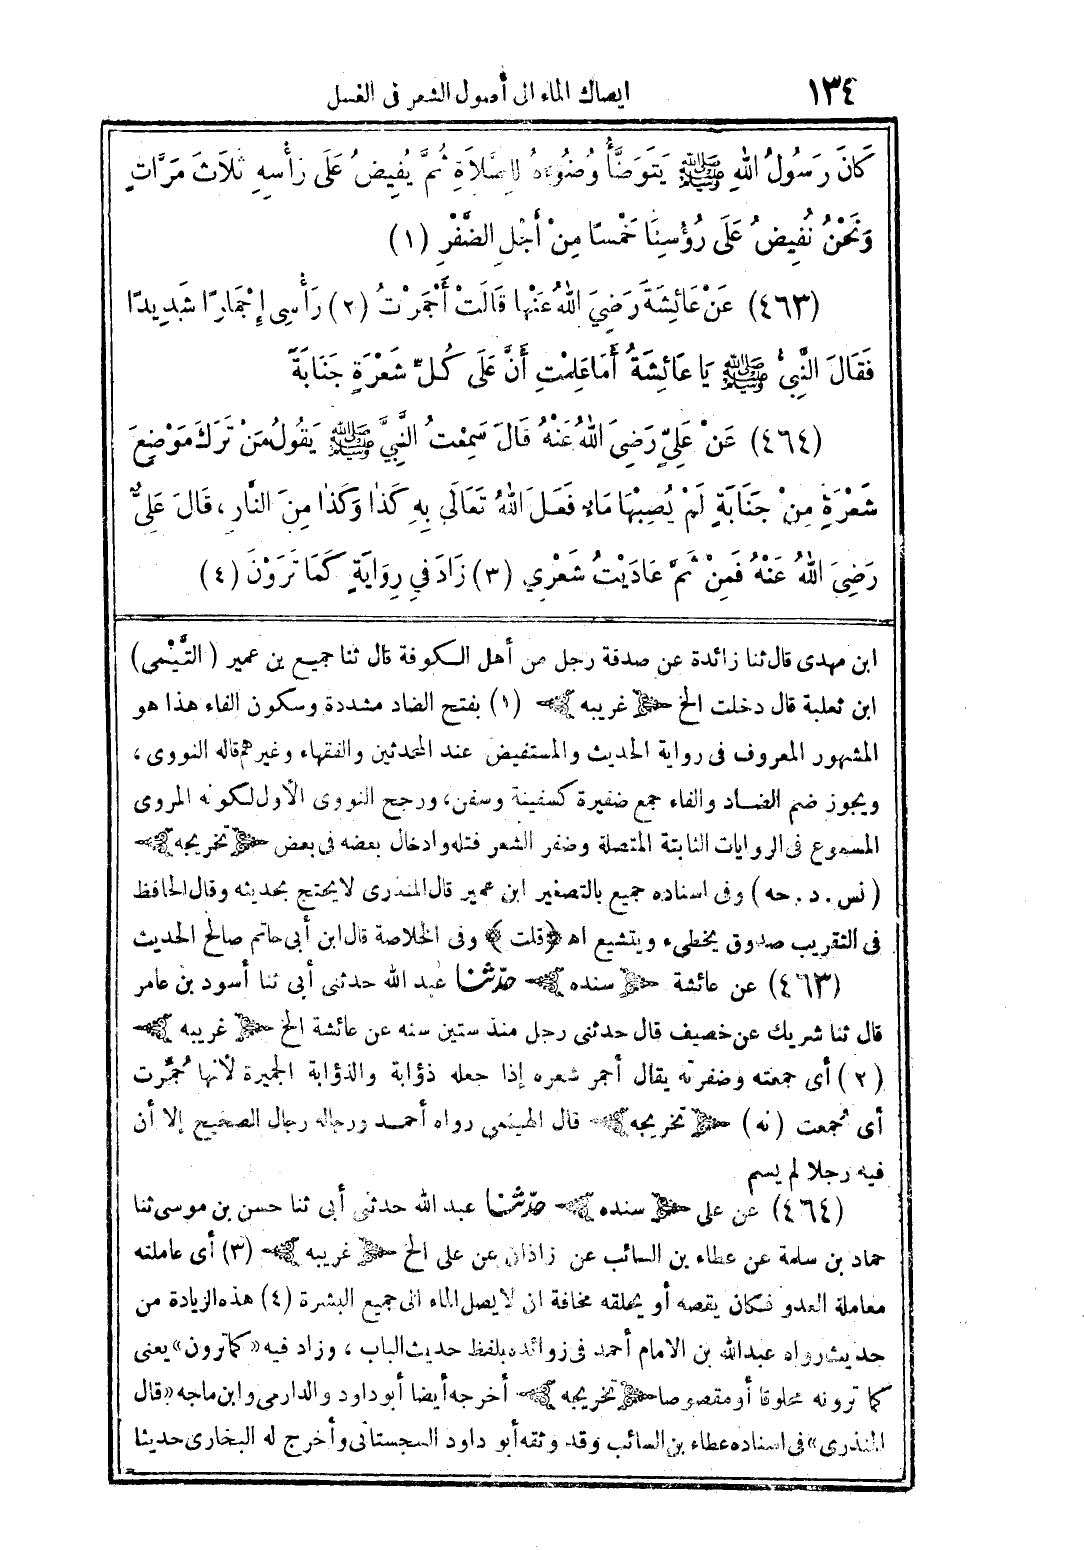 ١٣٤ ايصال الماء الى أصول الشعر فى الغسل
كَانَ رَسُولُ اللهِ ﷺ يَتَوَضَّأُ وُضُوءَهُ لِلصَّلَاةِ ثُمَّ يُفِيضُ عَلَى رَأْسِهِ ثَلَاثَ مَرَّاتٍ
وَنَحْنُ نُفِيضُ عَلَى رُؤُسِنَا خَمْسًا مِنْ أَجْلِ الضَّفْرِ (١)
(٤٦٣) عَنْ عَائِشَةَ رَضِيَ اللهُ عَنْهَا قَالَتْ أَجْمَرْتُ (٢) رَأْسِى إِجْمَارًا شَدِيدًا
فَقَالَ النَّبِىُّ ﷺ يَا عَائِشَةُ أَمَا عَلِمْتِ أَنَّ عَلَى كُلِّ شَعْرَةٍ جَنَابَةً
(٤٦٤) عَنْ عَلِىٍّ رَضِيَ اللهُ عَنْهُ قَالَ سَمِعْتُ النَّبِيَّ ﷺ يَقُولُ مَنْ تَرَكَ مَوْضِعَ
شَعْرَةٍ مِنْ جَنَابَةٍ لَمْ يُصِبْهَا مَاءٌ فَعَلَ اللهُ تَعَالَى بِهِ كَذَا وَكَذَا مِنَ النَّارِ ، قَالَ عَلِىٌّ
رَضِيَ اللهُ عَنْهُ فَمِنْ ثَمَّ عَادَيْتُ شَعْرِي (٣) زَادَ فِي رِوَايَةٍ كَمَا تَرَوْنَ (٤)
ابن مهدى قال ثنا زائدة عن صدقة رجل من أهل الكوفة قال ثنا جميع بن عمير ( التَّيْمى)
ابن ثعلبة قال دخلت الخ ﴿ غريبه ﴾ (١) بفتح الضاد مشددة وسكون الفاء هذا هو
المشهور المعروف فى رواية الحديث والمستفيض عند المحدثين والفقهاء وغيرهم قاله النووى ،
ويجوز ضم الضاد والفاء جمع ضفيرة كسفينة وسفن، ورجح النووى الأول لكونه المروى
المسموع فى الروايات الثابتة المتصلة وضفر الشعر فتله وادخال بعضه فى بعض ﴿ تخريجه ﴾
( نس . د . جه ) وفى اسناده جميع بالتصغير ابن عمير قال المنذرى لا يحتج بحديثه وقال الحافظ
فى التقريب صدوق يخطىء ويتشيع اه ﴿ قلت ﴾ وفى الخلاصة قال ابن أبى حاتم صالح الحديث
(٤٦٣) عن عائشة ﴿ سنده ﴾ حدّثنا عبد الله حدثنى أبى ثنا أسود بن عامر
قال ثنا شريك عن خصيف قال حدثنى رجل منذ ستين سنه عن عائشة الخ ﴿ غريبه ﴾
(٢) أى جمعته وضفرته يقال أجمر شعره إذا جعله ذؤابة والذؤابة الجميرة لأنها جُمِّرت
أى جُمعت (نه) ﴿ تخريجه ﴾ قال الهيثمى رواه أحمد ورجاله رجال الصحيح إلا أن
فيه رجلا لم يسم
(٤٦٤) عن على ﴿ سنده ﴾ حدّثنا عبد الله حدثنى أبى ثنا حسن بن موسى ثنا
حماد بن سلمة عن عطاء بن السائب عن زاذان عن على الخ ﴿ غريبه ﴾ (٣) أى عاملته
معاملة العدو فكان يقصه أو يحلقه مخافة ان لا يصل الماء الى جميع البشرة (٤) هذه الزيادة من
حديث رواه عبدالله بن الامام أحمد فى زوائده بلفظ حديث الباب ، وزاد فيه «كما ترون» يعنى
كما ترونه محلوقا أو مقصوصا ﴿ تخريجه ﴾ أخرجه أيضا أبو داود والدارمى وابن ماجه «قال
المنذرى» فى اسناده عطاء بن السائب وقد وثقه أبو داود السجستانى وأخرج له البخارى حديثا